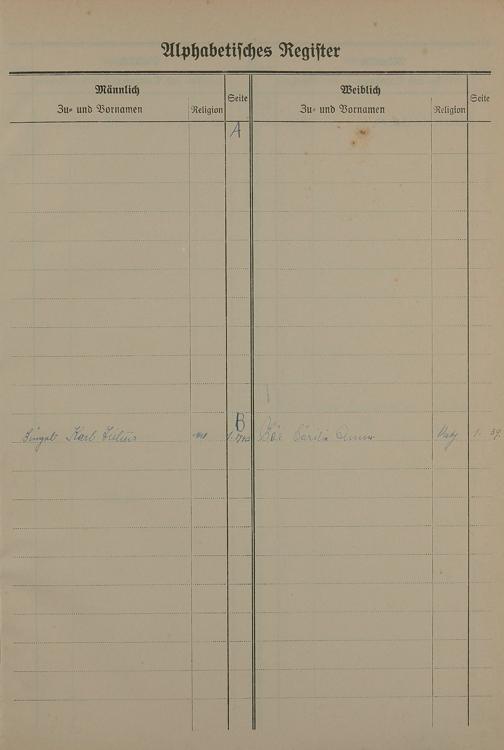 Alphabetisches Register
Männlich
Zu- und Vornamen
Religion
Seite
Weiblich
Zu- und Vornamen
Religion
Seite
A
B
Karl Julius
Cäcilie Anna
1. 39